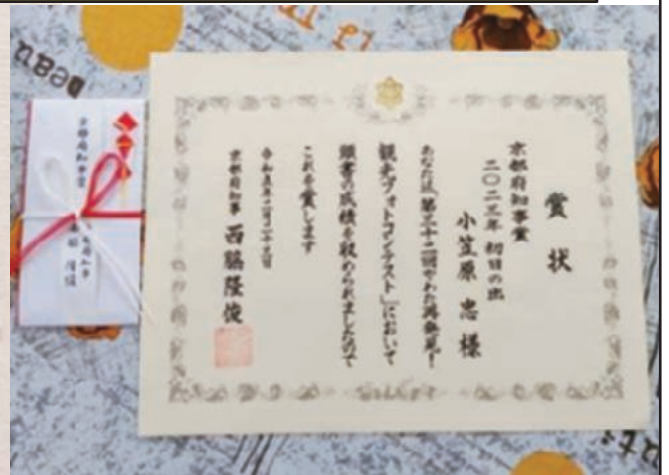 賞状
京都府知事賞
二〇二三年 初日の出
小笠原 忠 様
あなたは「第三十二回やわた再発見!
観光フォトコンテスト」において
頭書の成績を収められましたので
これを賞します
京都府知事 西脇隆俊
京都府知事賞